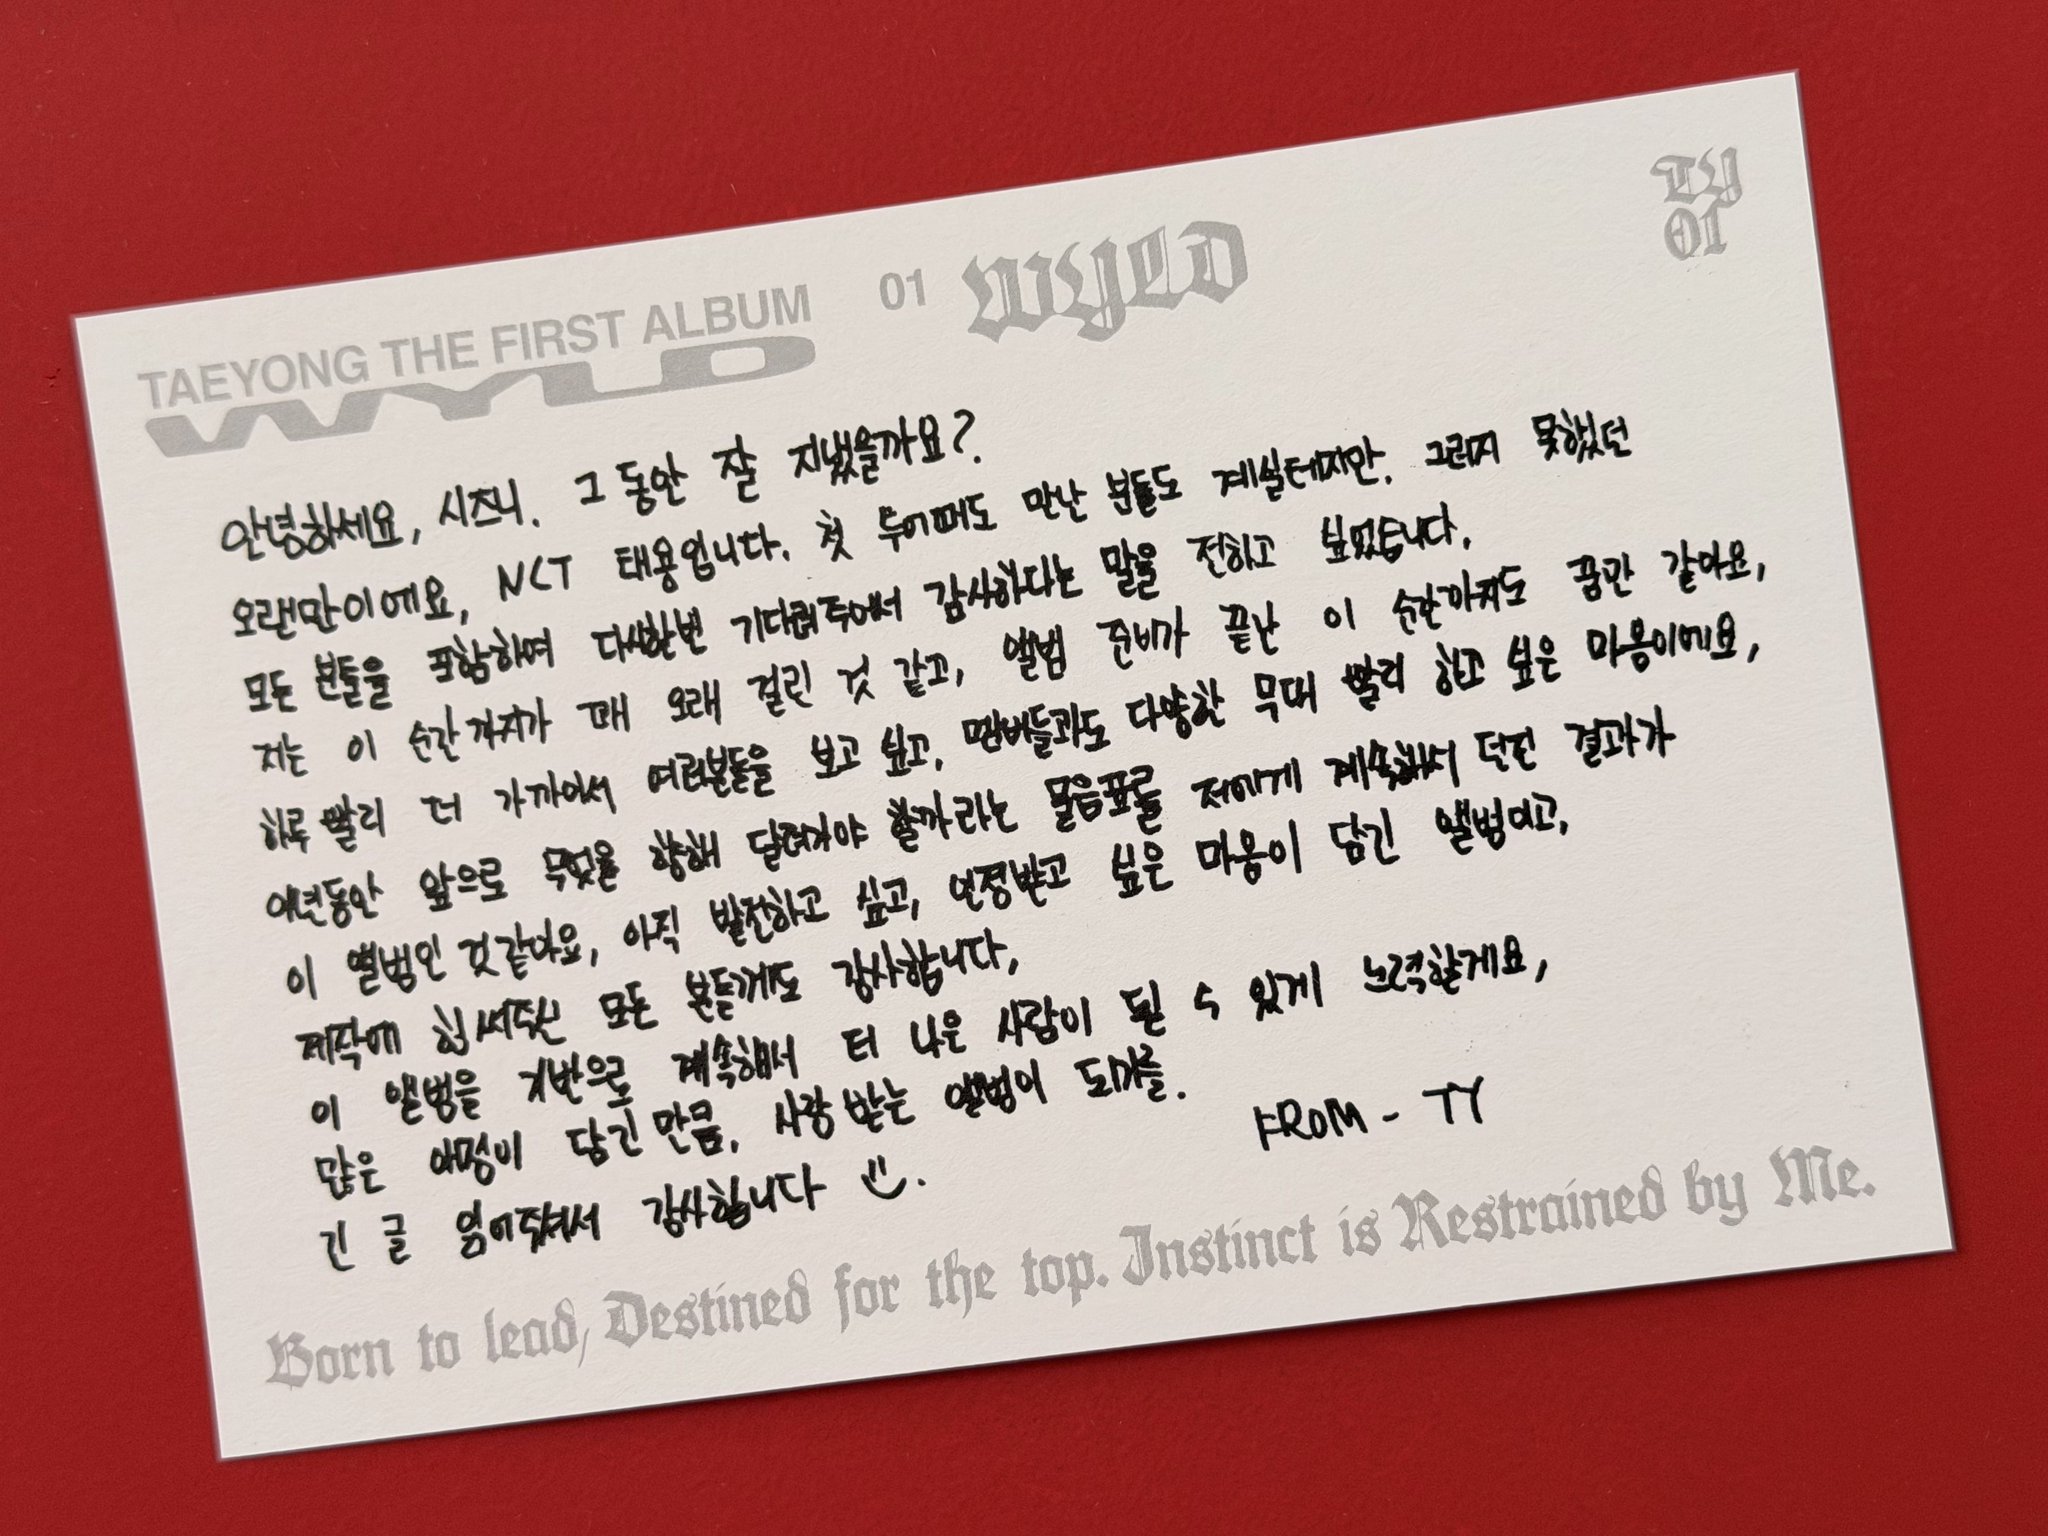 TAEYONG THE FIRST ALBUM
WYLD
01 WYLD
TY
01
안녕하세요, 시즈니. 그동안 잘 지냈을까요?
오랜만이에요, NCT 태용입니다. 첫 투어때도 만난 분들도 계실테지만. 그러지 못했던
모든 분들을 포함하여 다시한번 기다려주에서 감사하다는 말을 전하고 싶었습니다.
저는 이 순간까지가 꽤 오래 걸린 것 같고, 앨범 준비가 끝난 이 순간까지도 꿈만 같아요,
하루 빨리 더 가까이서 여러분들을 보고 싶고, 멤버들과도 다양한 무대 빨리 하고 싶은 마음이에요,
여년동안 앞으로 무엇을 향해 달려가야 할까라는 물음표를 저에게 계속해서 던진 결과가
이 앨범인 것 같아요, 아직 발전하고 싶고, 인정받고 싶은 마음이 담긴 앨범이고,
제작에 힘써주신 모든 분들께도 감사합니다,
이 앨범을 기반으로 계속해서 더 나은 사람이 될 수 있게 노력할게요,
많은 애정이 담긴만큼, 사랑받는 앨범이 되기를.
긴 글 읽어주셔서 감사합니다
FROM - TY
Born to lead, Destined for the top. Instinct is Restrained by Me.